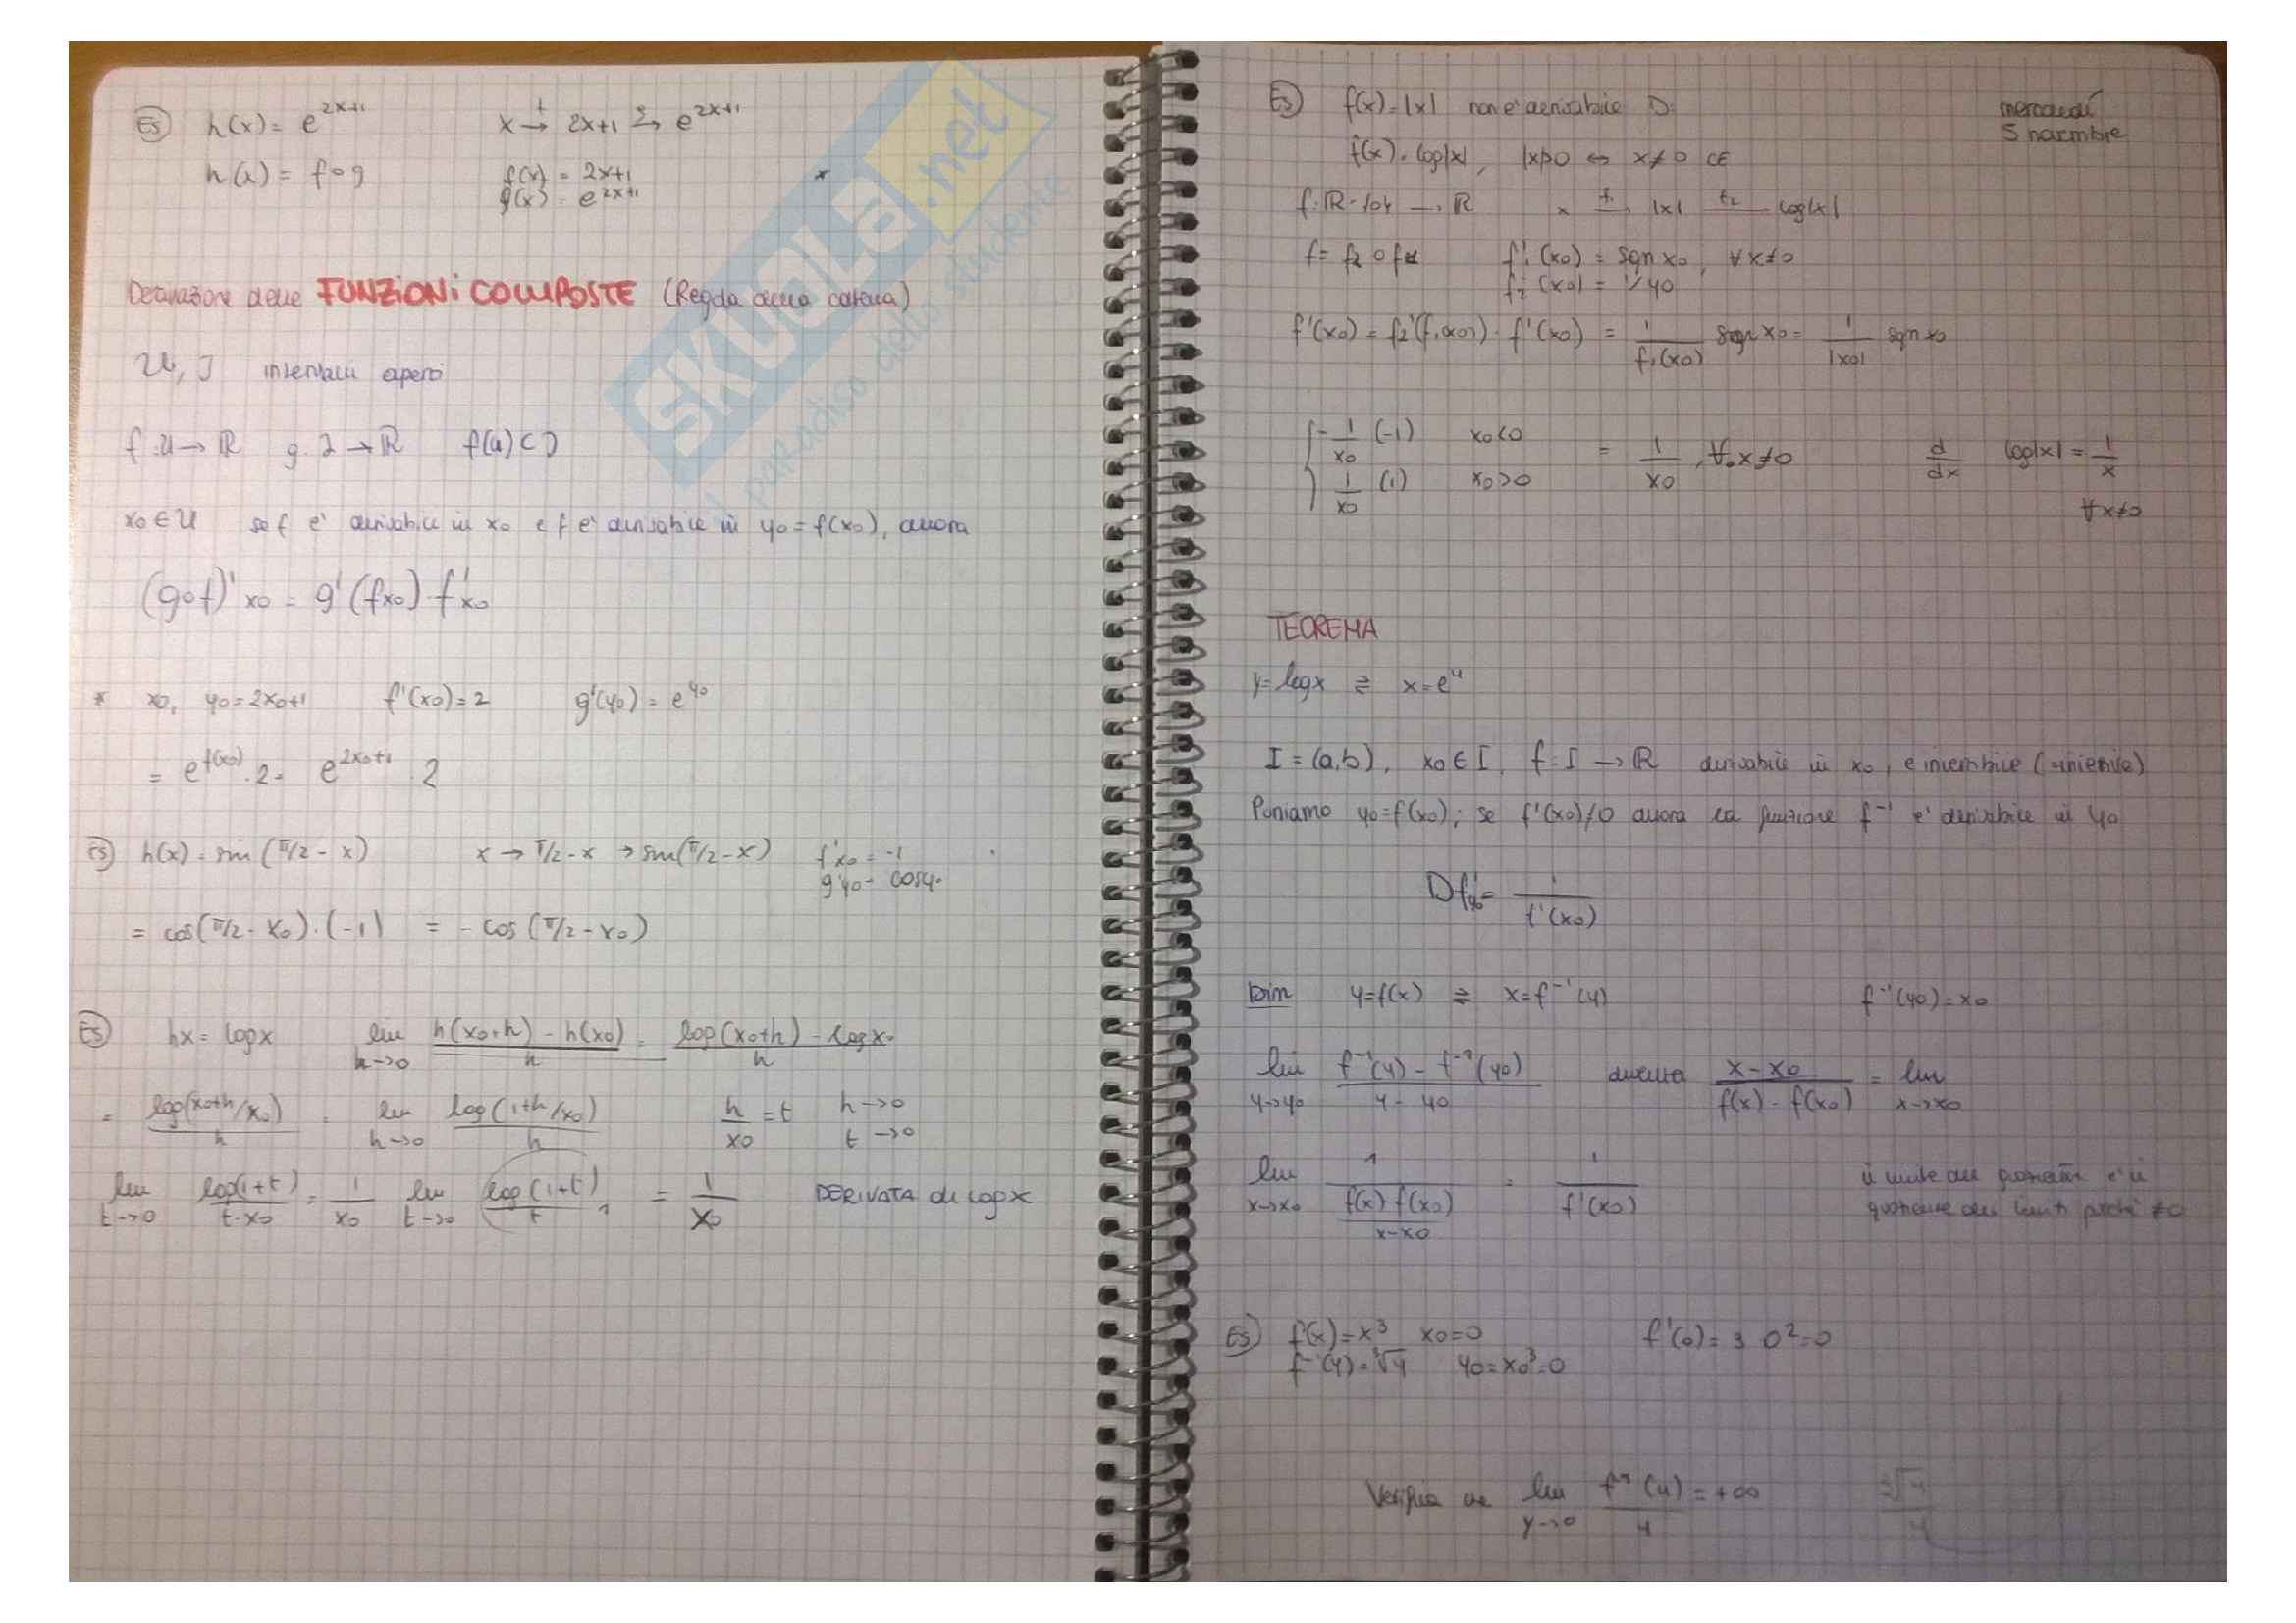 Es h(x) = e^{2x+1} x →^f 2x+1 →^g e^{2x+1}
h(x) = f∘g f(x) = 2x+1 *
g(x) = e^{2x+1}
Derivazione delle FUNZIONI COMPOSTE (Regola della catena)
U, J intervalli aperti
f: U → ℝ g: J → ℝ f(U) ⊂ J
x0 ∈ U se f e' derivabile in x0 e f e' derivabile in y0 = f(x0), allora
(g∘f)' x0 = g'(fx0) · f'x0
* x0, y0 = 2x0+1 f'(x0) = 2 g'(y0) = e^{y0}
= e^{f(x0)} · 2 = e^{2x0+1} · 2
Es h(x) = sin (π/2 - x) x → π/2 - x → sin(π/2 - x) f'x0 = -1
g'y0 = cosy0
= cos(π/2 - x0) · (-1) = - cos (π/2 - x0)
Es hx = logx lim h→0 h(x0+h) - h(x0) / h = log(x0+h) - logx0 / h
= log(x0+h/x0) / h = lim h→0 log(1+h/x0) / h h/x0 = t h→0 t→0
lim t→0 log(1+t) / t·x0 = 1/x0 lim t→0 log(1+t) / t 1 = 1/x0 DERIVATA di logx
Es f(x) = |x| non e' derivabile mercoledì
5 novembre
f(x) = log|x|, |x|>0 ⇔ x≠0 CE
f: ℝ-{0} → ℝ x →^{f1} |x| →^{f2} log|x|
f = f2 ∘ f1 f1'(x0) = sgn x0, ∀x≠0
f2'(x0) = 1/y0
f'(x0) = f2'(f1(x0)) · f'(x0) = 1/f1(x0) sgn x0 = 1/|x0| sgn x0
{ -1/x0 (-1) x0<0
1/x0 (1) x0>0 = 1/x0, ∀x≠0 d/dx log|x| = 1/x
∀x≠0
TEOREMA
y = logx ⇄ x = e^y
I = (a,b), x0 ∈ I, f: I → ℝ derivabile in x0, e invertibile
Poniamo y0 = f(x0); se f'(x0)≠0 allora la funzione f^{-1} e' derivabile in y0
Df^{-1}y0 = 1 / f'(x0)
Dim y = f(x) ⇄ x = f^{-1}(y) f^{-1}(y0) = x0
lim y→y0 f^{-1}(y) - f^{-1}(y0) / y - y0 diventa x - x0 / f(x) - f(x0) = lim x→x0
lim x→x0 1 / (f(x) f(x0) / x-x0) = 1 / f'(x0) il limite del quoziente e' il
quoziente dei limiti perchè ≠0
Es f(x) = x^3 x0 = 0 f'(0) = 3 0^2 = 0
f^{-1}(y) = ∛y y0 = x0^3 = 0
Verifica che lim y→0 f^{-1}(y) / y = +∞ ∛y / y
SKUOLA.net
il paradiso dello studente